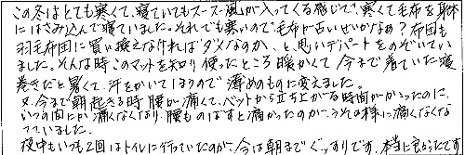 この冬はとても寒くて、寝ていてもスースー風が入ってくる感じで、寒くて毛布を身体
にはさみ込んで寝ていました。それでも寒いので毛布が古いせいかなぁ?布団も
羽毛布団に買い換えなければダメなのか、と思いデパートをのぞいてい
ました。そんな時このマットを知り使ったところ暖かくて今まで着ていた寝
巻きだと暑くて、汗をかいてしまうので薄めのものに変えました。
又、今まで朝起きる時腰が痛くて、ベットから立ち上がる時間がかかったのに、
いつの間にか痛くなくなり、腰ものばすと痛かったのが、うその様に痛くなくな
っていました。
夜中もいつも2回はトイレに行っていたのが、今は朝までぐっすりです。本当に良かったです